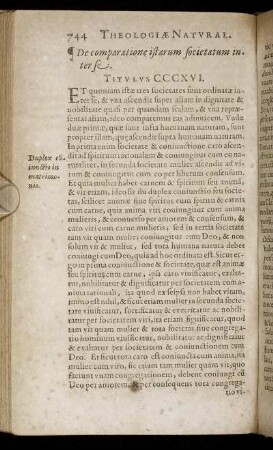 744 THEOLOGIÆ NATVRAL.
¶ De comparatione istarum societatum in-
ter se.
TITVLVS CCCXVI.
ET quoniam istæ tres societates sunt ordinatæ in-
ter se, & vna ascendit super aliam in dignitate &
nobilitate quasi per quandam scalam, & vna repræ-
sentat aliam, ideo comparemus eas adinuicem. Vnde
duæ primæ, quæ sunt infra humanam naturam, sunt
propter istam, quæ ascendit supra humanam naturam.
In prima enim societate & coniunctione caro ascen-
dit ad spiritum rationalem & coniungitur cum eo na-
turaliter, in secunda societate mulier ascendit ad vi-
rum & coniungitur cum eo liberaliter per consensum
Et quia mulier habet carnem & spiritum seu animã,
& vir etiam, ideo fit ibi duplex coniunctio seu socie-
tas, scilicet animæ siue spiritus cum spiritu & carnis
cum carne, quia anima viri coniungitur cum anima
mulieris, & connectitur per amorem & consensum, &
caro viri cum carne mulieris, sed in tertia societate
tam vir quam mulier coniungitur cum Deo, & non
solum vir & mulier, sed tota humana natura debet
coniungi cum Deo, quia ad hoc ordinata est. Sicut er-
go in prima coniunctione & societate, quæ est animæ
seu spiritus cum carne, ipsa caro viuificatur, exalta-
tur, nobilitatur & dignificatur per societatem cum a-
nima rationali, ita quod ex seipsa non habet vitam,
immo est nihil, & sicut etiam mulier in secunda societa-
te viuificatur, fortificatur & exercitatur ac nobilita-
tur per societatem viri, ita etiam significatur, quod
tam vir quam mulier & tota societas siue congrega-
tio hominum viuificatur, nobilitatur, dignificatur &
exaltatur per societatem & coniunctionem cum
Deo. Et sicut tota caro est coniuncta cum anima, ita
mulier cum viro, sic etiam tam mulier quam vir, quo
faciunt vnam congregationem, debent coniungi cũ
Deo per amorem, & per consequens tota congrega-
tio vi-
Duplex cõ-
iunctio in
matrimo-
nio.